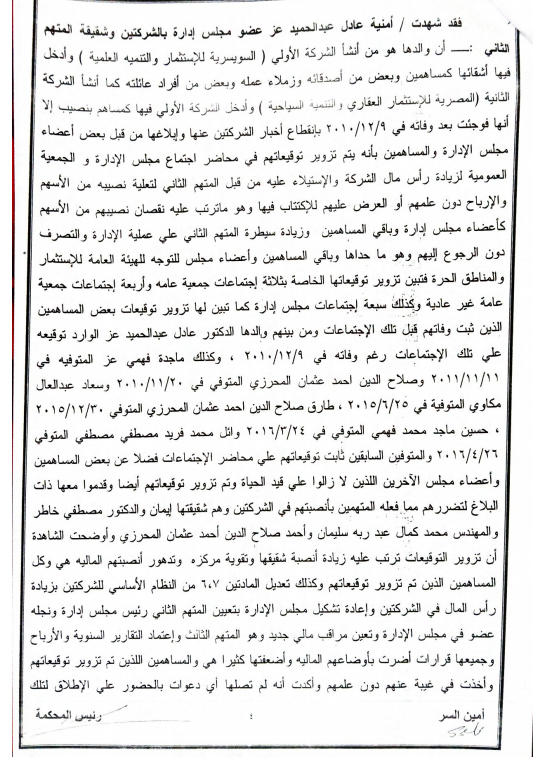 فقد شهدت / أمنية عادل عبدالحميد عز عضو مجلس إدارة بالشركتين وشقيقة المتهم
الثاني :ــ أن والدها هو من أنشأ الشركة الأولي ( السويسرية للإستثمار والتنميه العلمية ) وأدخل
فيها أشقائها كمساهمين وبعض من أصدقائه وزملاء عمله وبعض من أفراد عائلته كما أنشأ الشركة
الثانية (المصرية للإستثمار العقاري والتنمية السياحية ) وأدخل الشركة الأولي فيها كمساهم بنصيب إلا
أنها فوجئت بعد وفاته في ٢٠١٠/١٢/٩ بإنقطاع أخبار الشركتين عنها وإبلاغها من قبل بعض أعضاء
مجلس الإدارة والمساهمين بأنه يتم تزوير توقيعاتهم في محاضر اجتماع مجلس الإدارة و الجمعية
العمومية لزيادة رأس مال الشركة والإستيلاء عليه من قبل المتهم الثاني لتعلية نصيبه من الأسهم
والإرباح دون علمهم أو العرض عليهم للإكتتاب فيها وهو ماترتب عليه نقصان نصيبهم من الأسهم
كأعضاء مجلس إدارة وباقي المساهمين وزيادة سيطرة المتهم الثاني علي عملية الإدارة والتصرف
دون الرجوع إليهم وهو ما حداها وباقي المساهمين وأعضاء مجلس للتوجه للهيئة العامة للإستثمار
والمناطق الحرة فتبين تزوير توقيعاتها الخاصة بثلاثة إجتماعات جمعية عامه وأربعة إجتماعات جمعية
عامة غير عادية وكذلك سبعة إجتماعات مجلس إدارة كما تبين لها تزوير توقيعات بعض المساهمين
الذين ثبت وفاتهم قبل تلك الإجتماعات ومن بينهم والدها الدكتور عادل عبدالحميد عز الوارد توقيعه
علي تلك الإجتماعات رغم وفاته في ٢٠١٠/١٢/٩ ، وكذلك ماجدة فهمي عز المتوفيه في
٢٠١١/١١/١١ وصلاح الدين احمد عثمان المحرزي المتوفي في ٢٠١٠/١١/٢٠ وسعاد عبدالعال
مكاوي المتوفية في ٢٠١٥/٦/٢٥ ، طارق صلاح الدين احمد عثمان المحرزي المتوفي ٢٠١٥/١٢/٣٠
، حسين ماجد محمد فهمي المتوفي في ٢٠١٦/٣/٢٤ وائل محمد فريد مصطفي مصطفي المتوفي
٢٠١٦/٤/٢٦ والمتوفين السابقين ثابت توقيعاتهم علي محاضر الإجتماعات فضلا عن بعض المساهمين
وأعضاء مجلس الآخرين اللذين لا زالوا علي قيد الحياة وتم تزوير توقيعاتهم أيضا وقدموا معها ذات
البلاغ لتضررهم مما فعله المتهمين بأنصبتهم في الشركتين وهم شقيقتها إيمان والدكتور مصطفي خاطر
والمهندس محمد كمال عبد ربه سليمان وأحمد صلاح الدين أحمد عثمان المحرزي وأوضحت الشاهدة
أن تزوير التوقيعات ترتب عليه زيادة أنصبة شقيقها وتقوية مركزه وتدهور أنصبتهم الماليه هي وكل
المساهمين الذين تم تزوير توقيعاتهم وكذلك تعديل المادتين ٦،٧ من النظام الأساسي للشركتين بزيادة
رأس المال في الشركتين وإعادة تشكيل مجلس الإدارة بتعيين المتهم الثاني رئيس مجلس إدارة ونجله
عضو في مجلس الإدارة وتعين مراقب مالي جديد وهو المتهم الثالث وإعتماد التقارير السنوية والأرباح
وجميعها قرارات أضرت بأوضاعهم الماليه وأضعفتها كثيرا هي والمساهمين اللذين تم تزوير توقيعاتهم
وأخذت في غيبة عنهم دون علمهم وأكدت أنه لم تصلها أي دعوات بالحضور علي الإطلاق لتلك
أمين السر ٤ رئيس المحكمة